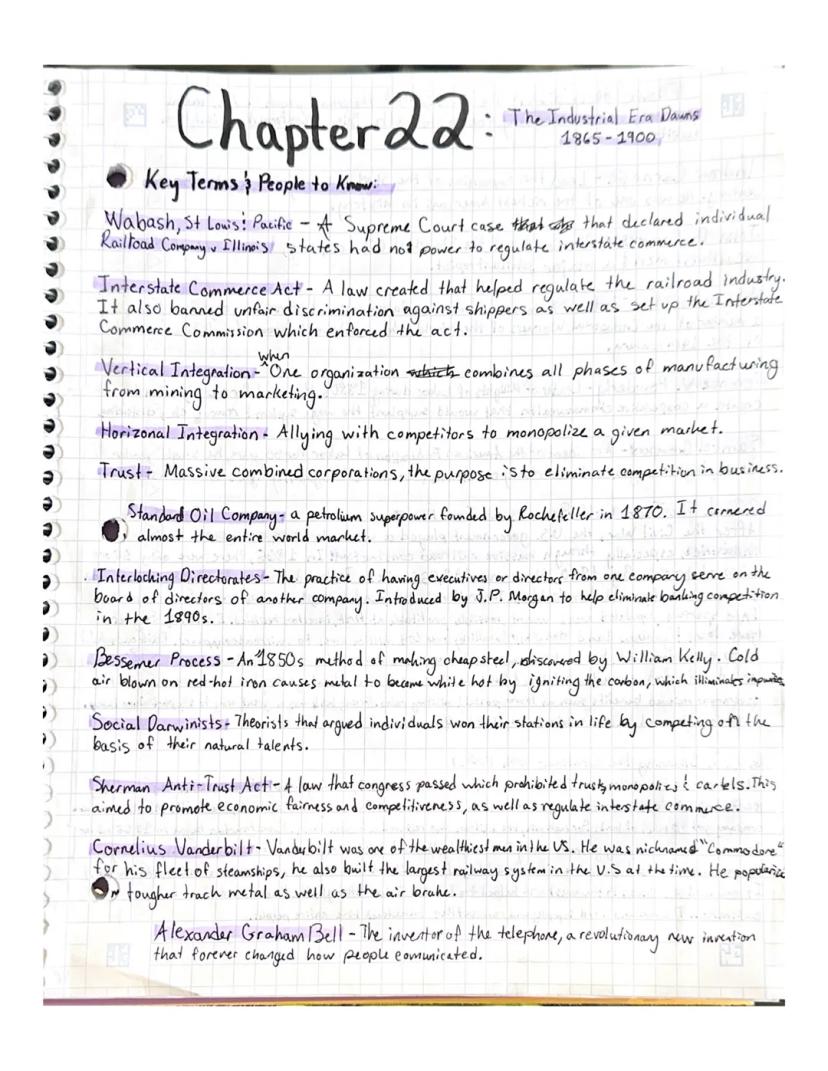 Chapter 22: The Industrial Era Dawns
1865-1900
Key Terms & People to Know:
Wabash, St Louis & Pacific - A Supreme Court case that declared individual
Railroad Company v Illinois states had not power to regulate interstate commerce.
Interstate Commerce Act - A law created that helped regulate the railroad industry.
It also banned unfair discrimination against shippers as well as set up the Interstate
Commerce Commission which enforced the act.
Vertical Integration - when One organization combines all phases of manufacturing
from mining to marketing.
Horizonal Integration - Allying with competitors to monopolize a given market.
Trust - Massive combined corporations, the purpose is to eliminate competition in business.
Standard Oil Company - a petrolium superpower founded by Rochefeller in 1870. It cornered
almost the entire world market.
Interlocking Directorates - The practice of having executives or directors from one company serve on the
board of directors of another company. Introduced by J.P. Morgan to help eliminate banking competition
in the 1890s.
Bessemer Process - An 1850s method of making cheap steel, discovered by William Kelly. Cold
air blown on red-hot iron causes metal to become white hot by igniting the carbon, which illiminates
Social Darwinists - Theorists that argued individuals won their stations in life by competing on the
basis of their natural talents.
Sherman Anti-Trust Act - A law that congress passed which prohibited trusts, monopolies & cartels. This
aimed to promote economic fairness and competitiveness, as well as regulate interstate commerce.
Cornelius Vanderbilt - Vanderbilt was one of the wealthiest men in the US. He was nicknamed "Commodore"
for his fleet of steamships, he also built the largest railway system in the U.S at the time. He
tougher track metal as well as the air brake.
Alexander Graham Bell - The inventor of the telephone, a revolutionary new invention
that forever changed how people comunicated.